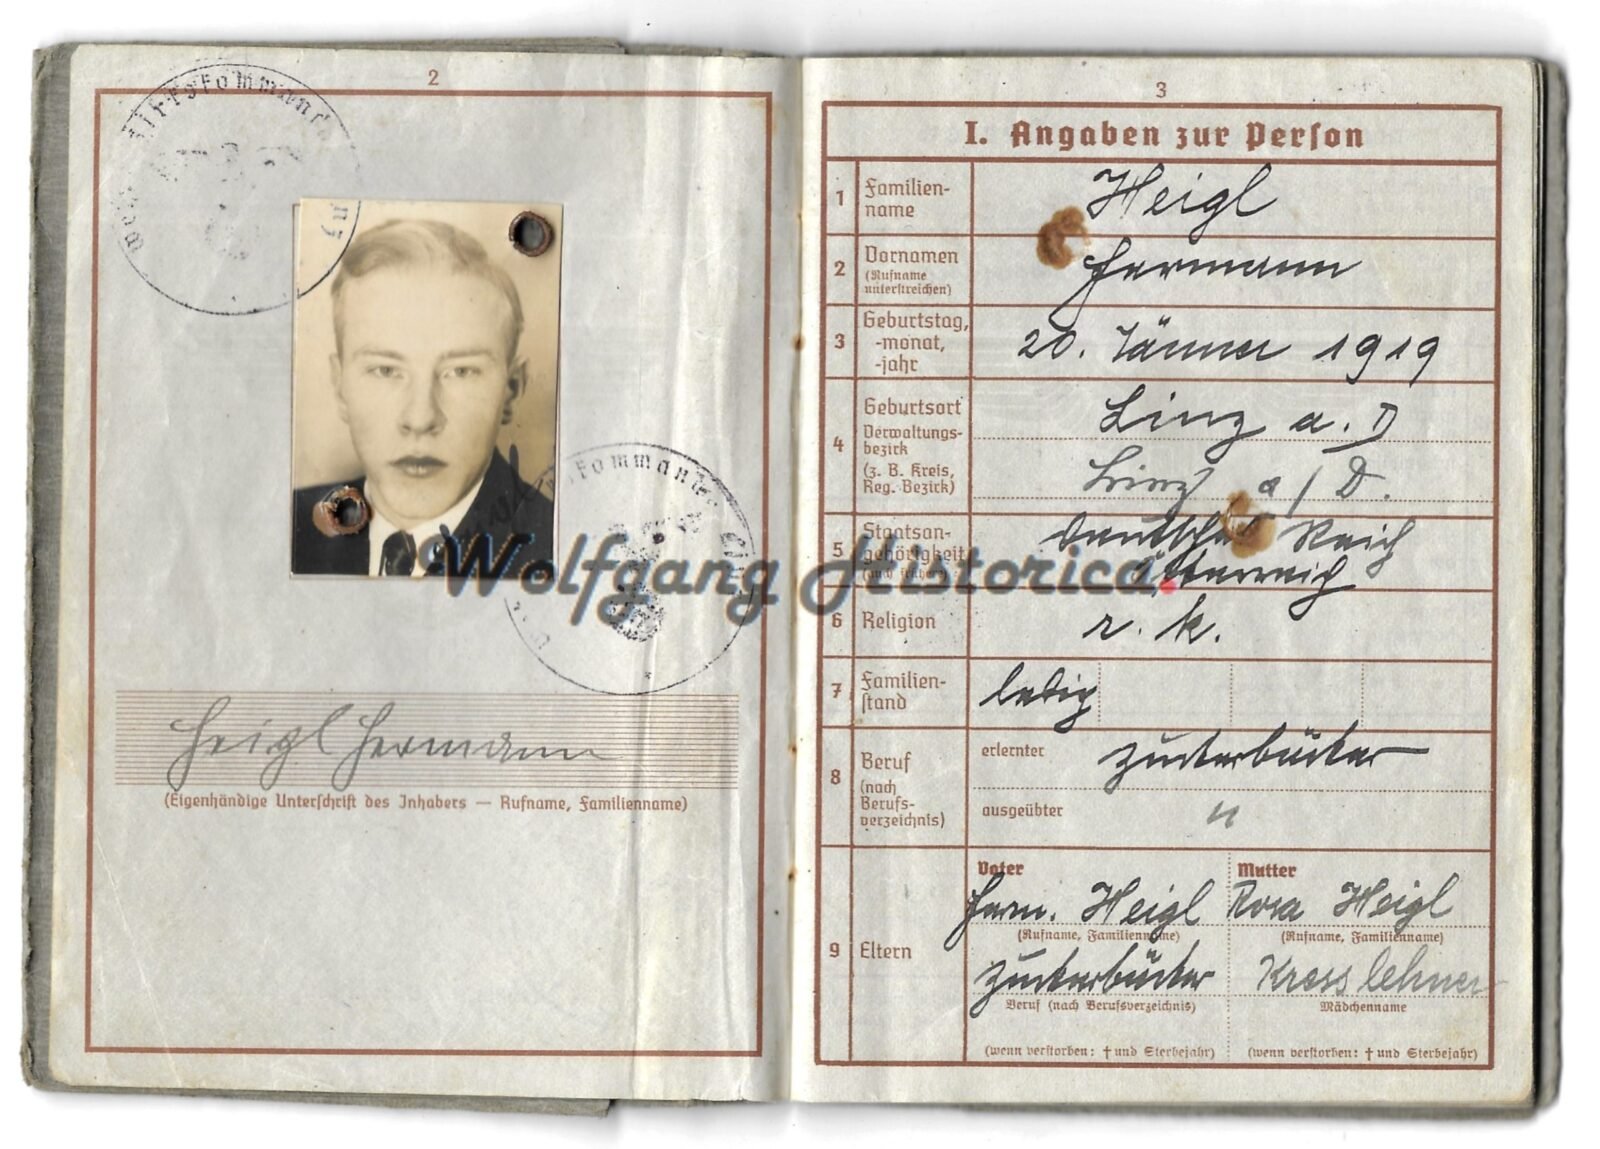 2
Wehrbezirkskommando Linz
Heigl Hermann
(Eigenhändige Unterschrift des Inhabers — Rufname, Familienname)
3
I. Angaben zur Person
1 Familien-
name
Heigl
2 Vornamen
(Rufname
unterstreichen)
Hermann
3 Geburtstag,
-monat,
-jahr
20. Jänner 1919
4 Geburtsort
Verwaltungs-
bezirk
(z. B. Kreis,
Reg. Bezirk)
Linz a. D
Linz a/D.
5 Staatsan-
gehörigkeit
(auch frühere)
Deutsches Reich
Österreich
6 Religion
r. k.
7 Familien-
stand
ledig
8 Beruf
(nach
Berufs-
verzeichnis)
erlernter Zuckerbäcker
ausgeübter "
9 Eltern
Vater
Herm. Heigl
(Rufname, Familienname)
Zuckerbäcker
Beruf (nach Berufsverzeichnis)
(wenn verstorben: † und Sterbejahr)
Mutter
Rosa Heigl
(Rufname, Familienname)
Kresslehner
Mädchenname
(wenn verstorben: † und Sterbejahr)
Wolfgang Historica